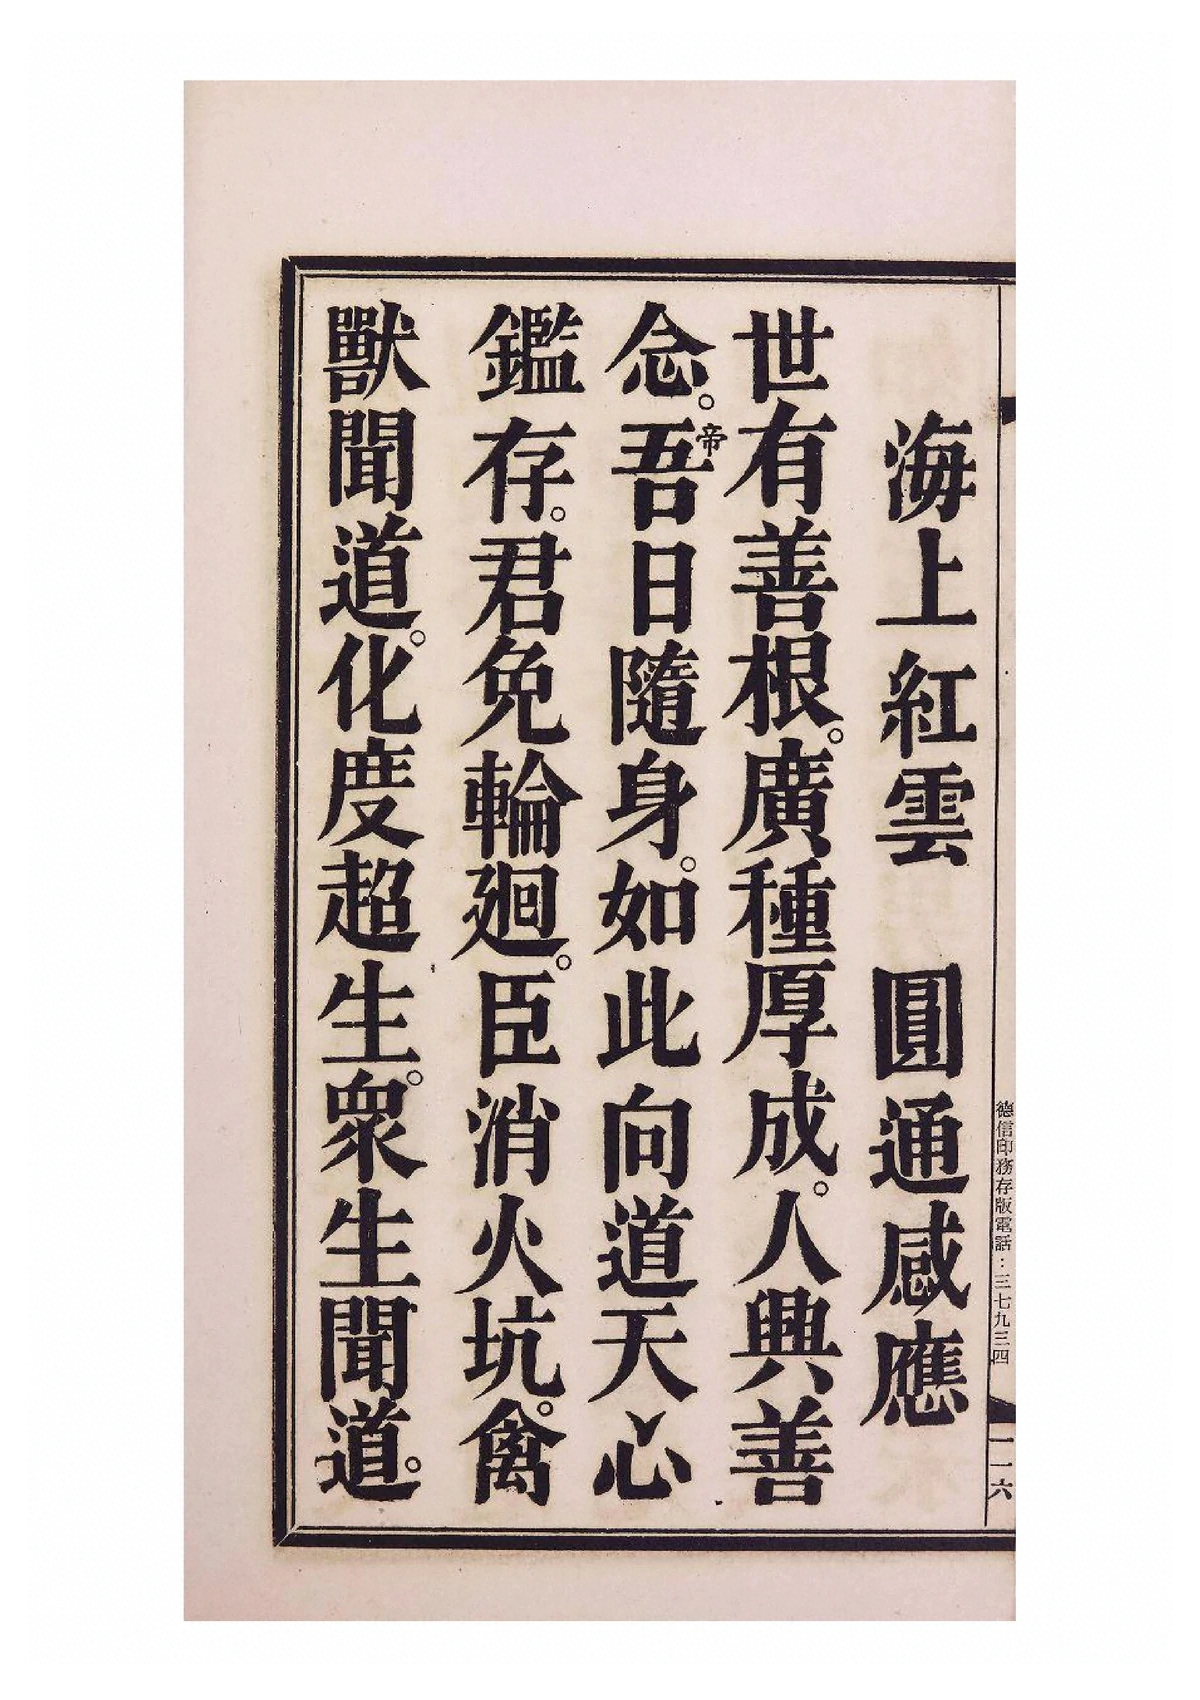 德信印務存版電話：三七九三四
一一六
海上紅雲　圓通感應
世有善根。廣種厚成。人興善
念。帝吾日隨身。如此向道天心
鑑存。君免輪廻。臣消火坑。禽
獸聞道。化度超生。衆生聞道。